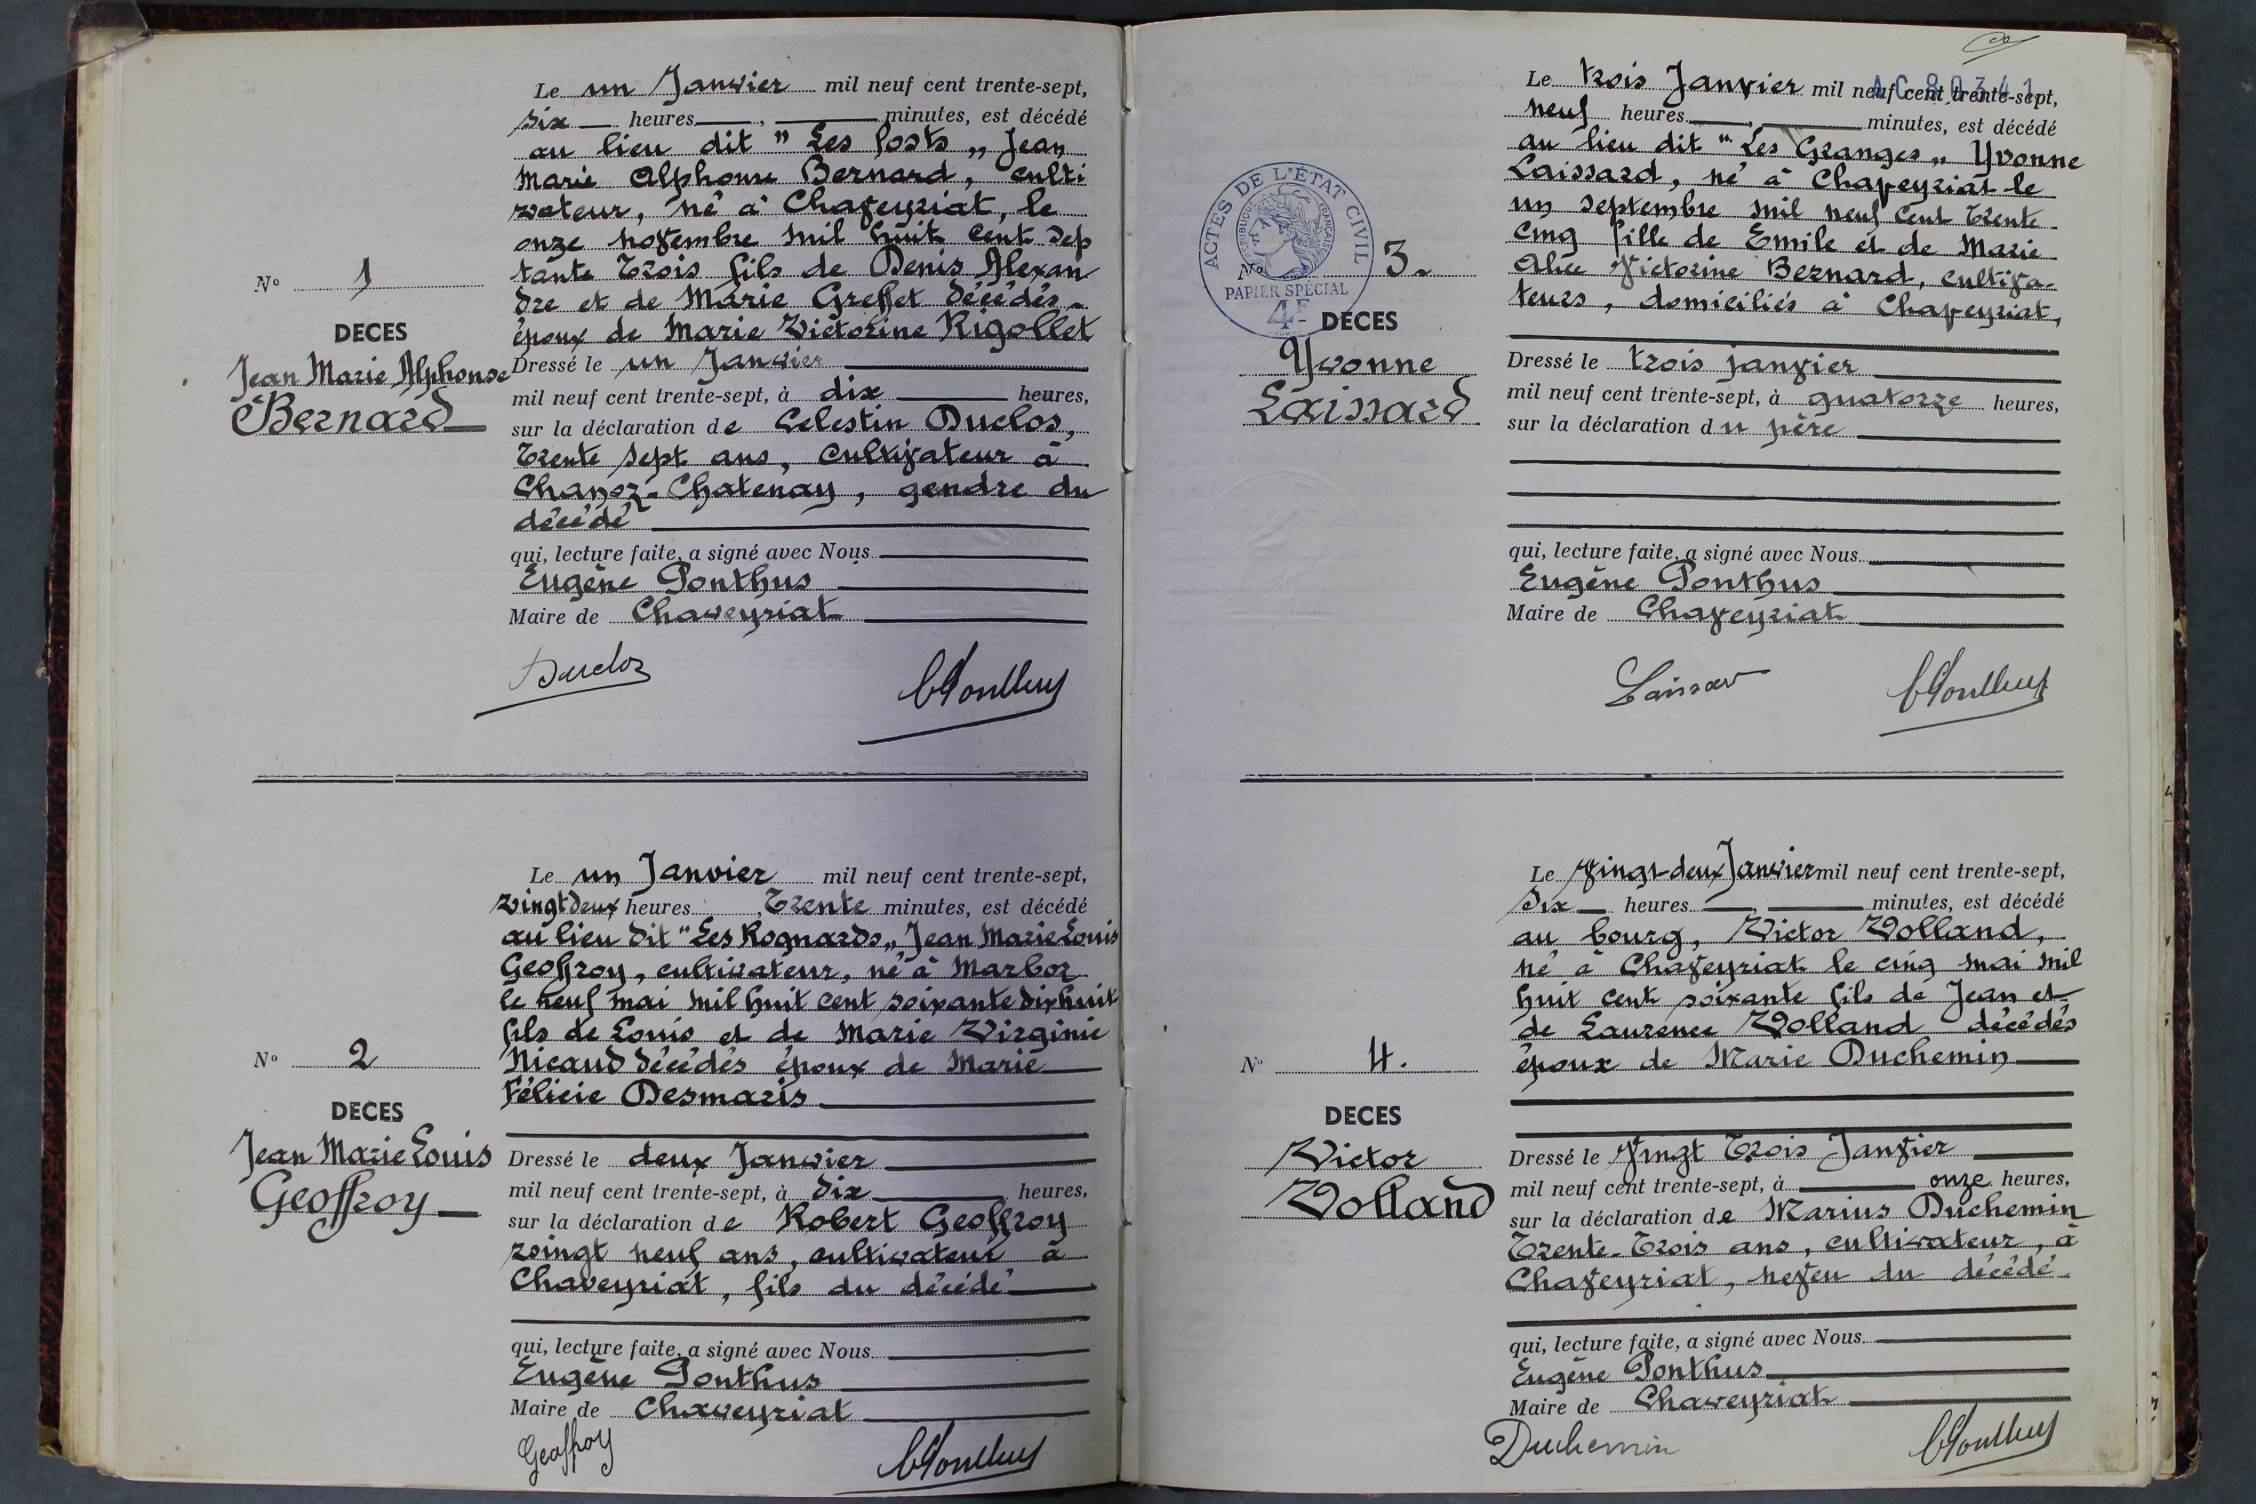 Le un Janvier mil neuf cent trente-sept,
six heures, minutes, est décédé
au lieu dit " Les Posts „ Jean
Marie Alphonse Bernard, culti
vateur, né à Chaveyriat, le
onze novembre mil huit cent sep
tante trois fils de Denis Alexan
dre et de Marie Greffet décédés.
époux de Marie Victorine Rigollet
Nº 1
DECES
Jean Marie Alphonse
Bernard
Dressé le un Janvier
mil neuf cent trente-sept, à dix heures,
sur la déclaration de Celestin Duclos,
trente sept ans, cultivateur à
Chanoz-Chatenay, gendre du
décédé
qui, lecture faite, a signé avec Nous
Eugène Ponthus
Maire de Chaveyriat
Duclos
Ponthus
Le un Janvier mil neuf cent trente-sept,
vingt deux heures, trente minutes, est décédé
au lieu dit "Les Rognards„ Jean Marie Louis
Geoffroy, cultivateur, né à Marboz
le neuf mai mil huit cent soixante dix huit
fils de Louis et de Marie Virginie
Nicaud décédés époux de Marie
Félicie Desmaris
Nº 2
DECES
Jean Marie Louis
Geoffroy
Dressé le deux Janvier
mil neuf cent trente-sept, à dix heures,
sur la déclaration de Robert Geoffroy
vingt neuf ans, cultivateur à
Chaveyriat, fils du décédé
qui, lecture faite, a signé avec Nous
Eugène Ponthus
Maire de Chaveyriat
Geoffroy
Ponthus
AC 80341
Le trois Janvier mil neuf cent trente-sept,
neuf heures, minutes, est décédé
au lieu dit " Les Granges „ Yvonne
Laissard, né à Chaveyriat le
un septembre mil neuf cent trente
cinq fille de Emile et de Marie
Alice Victorine Bernard, cultiva-
teurs, domiciliés à Chaveyriat,
ACTES DE L'ÉTAT CIVIL
RÉPUBLIQUE FRANÇAISE
PAPIER SPÉCIAL
4F
Nº 3.
DECES
Yvonne
Laissard
Dressé le trois janvier
mil neuf cent trente-sept, à quatorze heures,
sur la déclaration du père
qui, lecture faite, a signé avec Nous
Eugène Ponthus
Maire de Chaveyriat
Laissar
Ponthus
Le Vingt-deux Janvier mil neuf cent trente-sept,
six heures, minutes, est décédé
au bourg, Victor Volland,
né à Chaveyriat le cinq mai mil
huit cent soixante fils de Jean et
de Laurence Volland décédés
époux de Marie Duchemin
Nº 4.
DECES
Victor
Volland
Dressé le Vingt trois Janvier
mil neuf cent trente-sept, à onze heures,
sur la déclaration de Marius Duchemin
trente-trois ans, cultivateur, à
Chaveyriat, neveu du décédé.
qui, lecture faite, a signé avec Nous
Eugène Ponthus
Maire de Chaveyriat
Duchemin
Ponthus